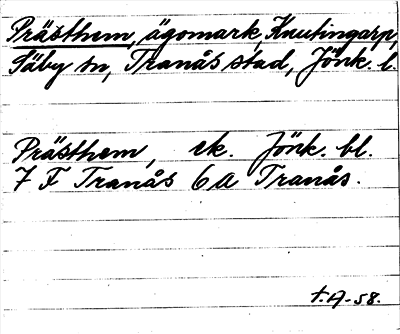 Prästhem, ägomark, Kautingarp,
Säby sn, Tranås stad, Jönk. l.
Prästhem, ek. Jönk. bl.
7 F Tranås 6 a Tranås.
t.A-58.